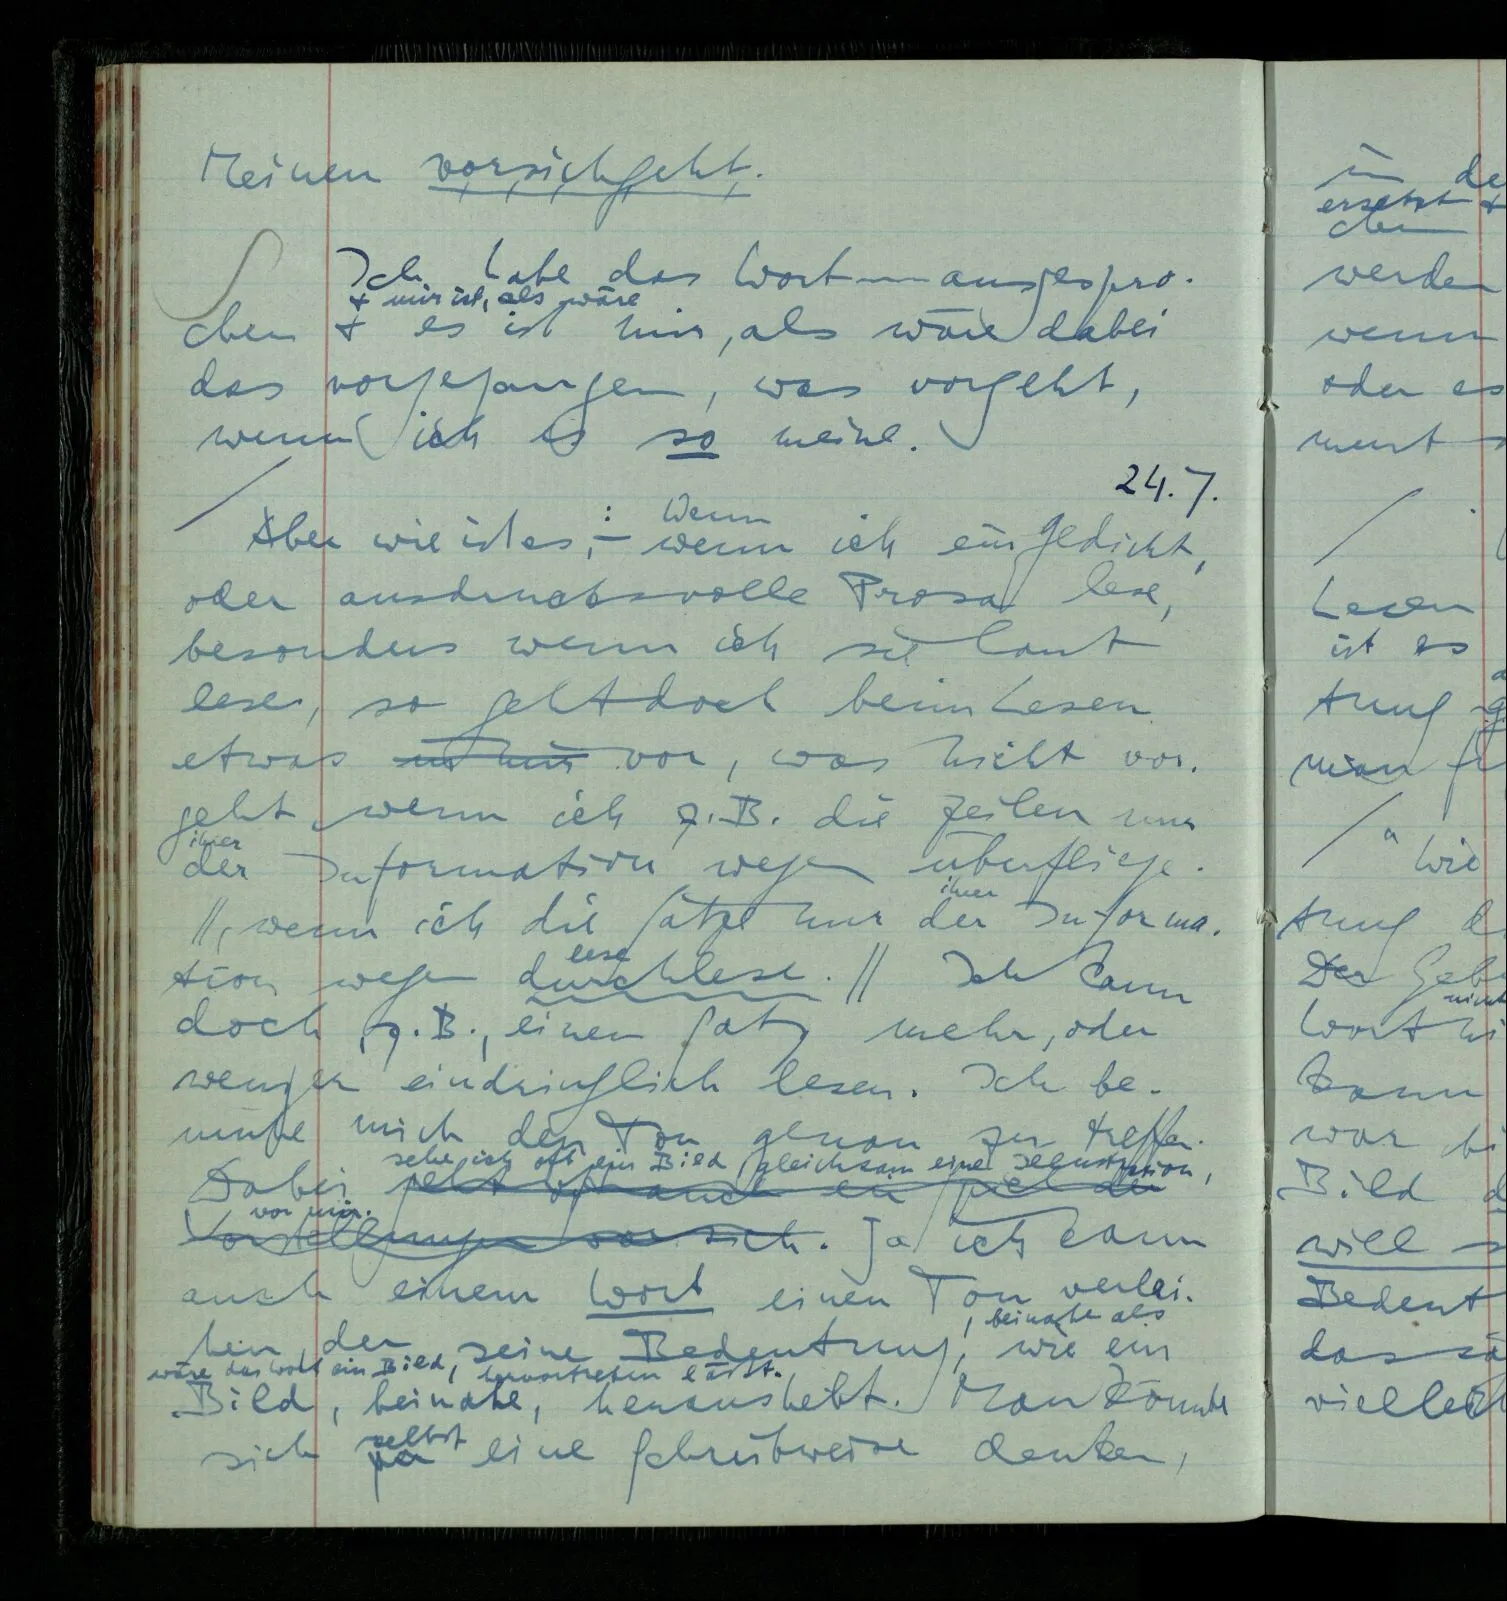 Meinen vorsichgeht.
Ich habe das Wort ausgespro-
+ mir ist, als wäre
chen + es ist mir, als wäre dabei
das vorgegangen, was vorgeht,
wenn ich es so meine.
24.7.
Aber wie ist es,: – Wenn wenn ich ein Gedicht,
oder ausdrucksvolle Prosa lese,
besonders wenn ich sie laut
lese, so geht doch beim Lesen
etwas in mir vor, was nicht vor-
geht wenn ich z.B. die Zeilen nur
ihrer
der Information wegen überfliege.
ihrer
//, wenn ich die Sätze nur der Informa-
lese
tion wegen durchlese. // Ich kann
doch, z.B., einen Satz mehr, oder
weniger eindringlich lesen. Ich be-
mühe mich den Ton genau zu treffen.
sehe ich oft ein Bild, gleichsam eine Illustration,
Dabei geht oft auch ein Spiel der
vor mir.
Vorstellungen vor sich. Ja ich kann
auch einem Wort einen Ton verlei-
, beinahe als
hen, der seine Bedeutung, wie ein
wäre das Wort ein Bild, hervortreten läßt.
Bild, beinahe, heraushebt. Man könnte
selbst
sich ja eine Schreibweise denken,
in
ersetzt +
chen
werden
wenn
oder es
Lesen
ist es
tung
man
" Wie
tung
Der
Wort
kann
war
Bild
will
Bedeut
das